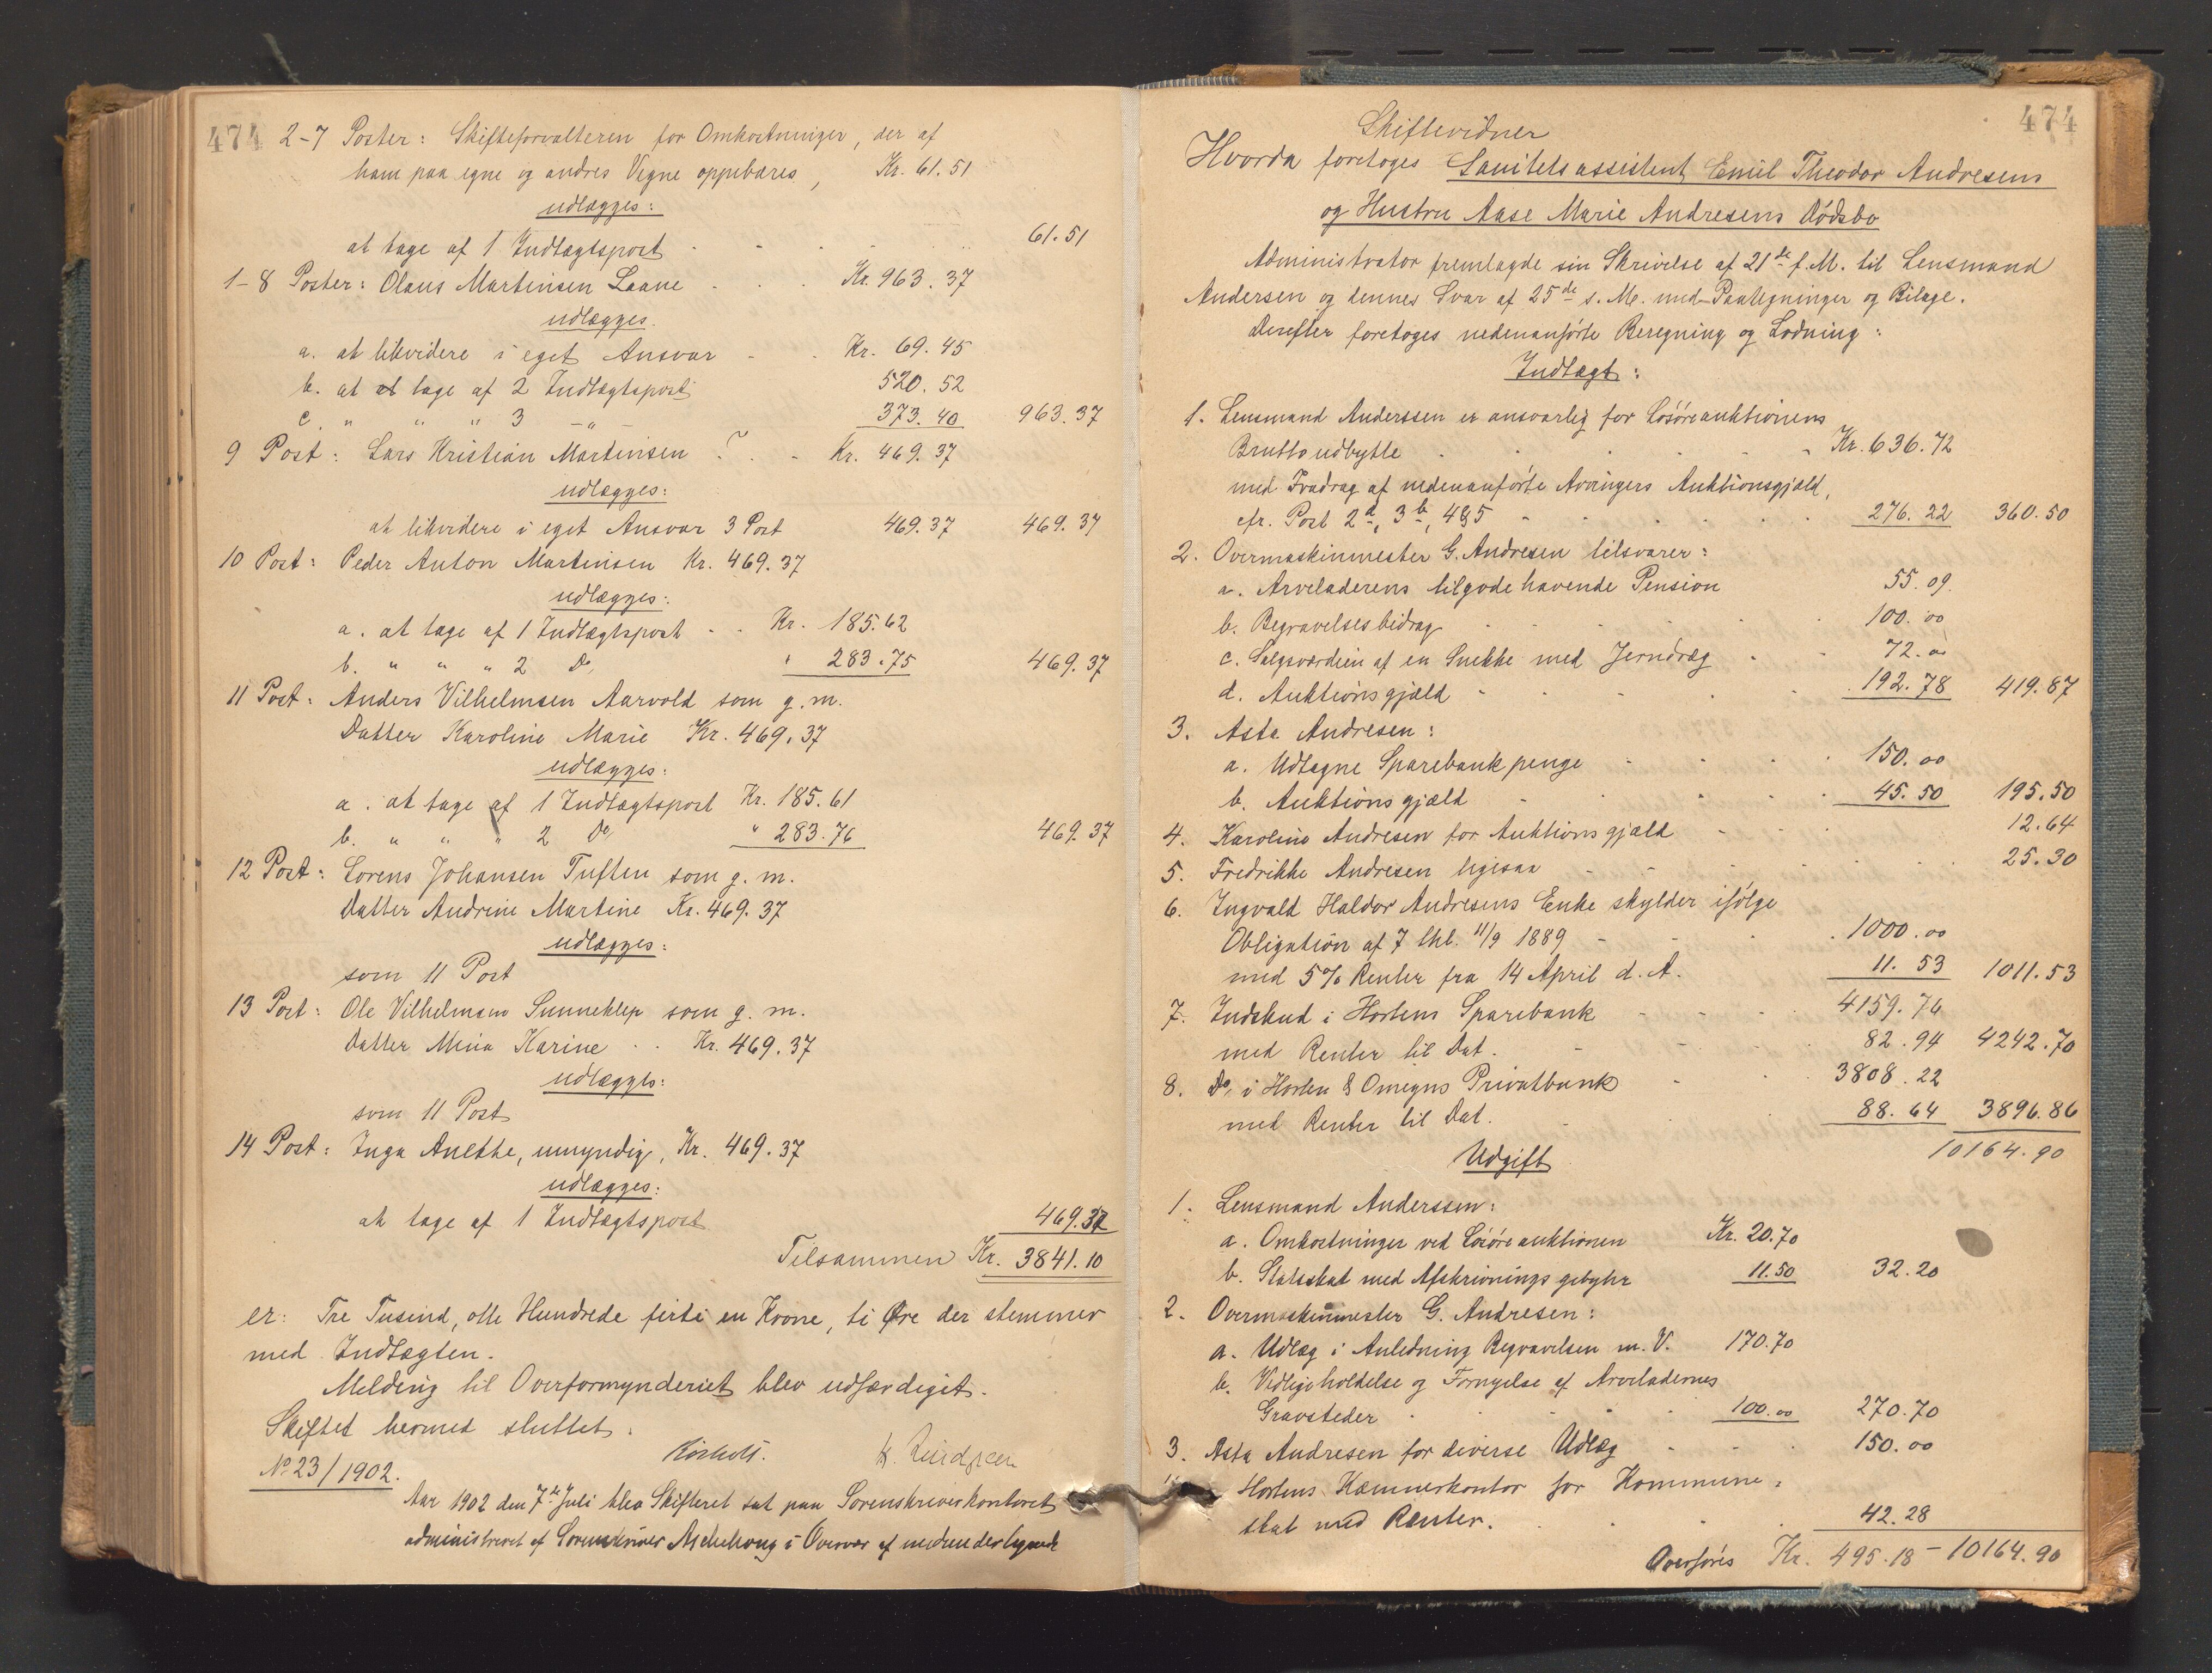 474 2-7 Poster: Skifteforvalteren for Omkostninger, der af
ham paa egne og andres Vegne oppebæres, Kr. 61.51
udlægges:
at tage af 1 Indtægtspost 61.51
1-8 Poster: Olaus Martinsen Laane Kr. 963.37
udlægges.
a. at likvidere i eget Ansvar Kr. 69.45
b. at at tage af 2 Indtægtspost 520.52
c. " " " 3 -"- 373.40 963.37
9 Post: Lars Kristian Martinsen Kr. 469.37
udlægges:
at likvidere i eget Ansvar 3 Post 469.37 469.37
10 Post: Peder Anton Martinsen Kr. 469.37
udlægges:
a. at tage af 1 Indtægtspost Kr. 185.62
b. " " " 2 Do " 283.75 469.37
11 Post: Anders Vilhelmsen Aarvold som g. m.
Datter Karoline Marie Kr. 469.37
udlægges:
a. at tage af 1 Indtægtspost Kr. 185.61
b. " " " 2 Do " 283.76 469.37
12 Post: Lorens Johansen Tuften som g. m.
Datter Andrine Martine Kr. 469.37
udlægges:
som 11 Post
13 Post: Ole Vilhelmsen Sunneklep som g. m.
Datter Mina Karine Kr. 469.37
udlægges:
som 11 Post
14 Post: Inga Anethe, umyndig, Kr. 469.37
udlægges:
at tage af 1 Indtægtspost 469.37
Tilsammen Kr. 3841.10
er: Tre Tusind, otte Hundrede firti en Krone, ti Øre der stemmer
med Indtægten.
Melding til Overformynderiet blev udfærdiget.
Skiftet hermed sluttet.
K. Lindgreen
No 23/1902.
Aar 1902 den 7de Juli blev Skifteret sat paa Sorenskriverkontoret
administreret af Sorenskriver Aschehoug i Overvær af nedenundertegnede
474
Skiftevidner
Hvorda foretoges Sanitetsassistent Emil Theodor Andresens
og Hustru Aase Marie Andresens Dødsbo
Administrator fremlagde sin Skrivelse af 21de f. M. til Lensmand
Andersen og dennes Svar af 25de s. M. med Paategninger og Bilage.
Derefter foretoges nedenanførte Beregning og Lodning:
Indtægt:
1. Lensmand Anderssen er ansvarlig for Løsøreauktionens
Bruttoudbytte Kr. 636.72
med Fradrag af nedenanførte Arvingers Auktionsgjæld,
cfr. Post 2d, 3b, 4&5 276.22 360.50
2. Overmaskinmester G. Andresen tilsvarer:
a. Arveladerens tilgodehavende Pension 55.09
b. Begravelsesbidrag 100.00
c. Salgsværdien af en Snekke med Jerndræg 72.00
d. Auktionsgjæld 192.78 419.87
3. Asta Andresen:
a. Udtagne Sparebankpenge 150.00
b. Auktionsgjæld 45.50 195.50
4. Karoline Andresen for Auktionsgjæld 12.64
5. Fredrikke Andresen ligesaa 25.30
6. Ingvald Haldor Andresens Enke skylder ifølge
Obligation af 7 thl. 11/9 1889 1000.00
med 5% Renter fra 14 April d. A. 11.53 1011.53
7. Indskud i Hortens Sparebank 4159.76
med Renter til Dat. 82.94 4242.70
8. Do i Horten & Omegns Privatbank 3808.22
med Renter til Dat. 88.64 3896.86
10164.90
Udgift
1. Lensmand Anderssen:
a. Omkostninger ved Løsøreauktionen Kr. 20.70
b. Statsskat med Afskrivningsgebyhr 11.50 32.20
2. Overmaskinmester G. Andresen:
a. Udlæg i Anledning Begravelsen m. V. 170.70
b. Vedligeholdelse og Fornyelse af Arveladernes
Gravsteder 100.00 270.70
3. Asta Andresen for diverse Udlæg 150.00
Hortens Kæmnerkontor for Kommune-
skat med Renter. 42.28
Overføres Kr. 495.18 - 10164.90